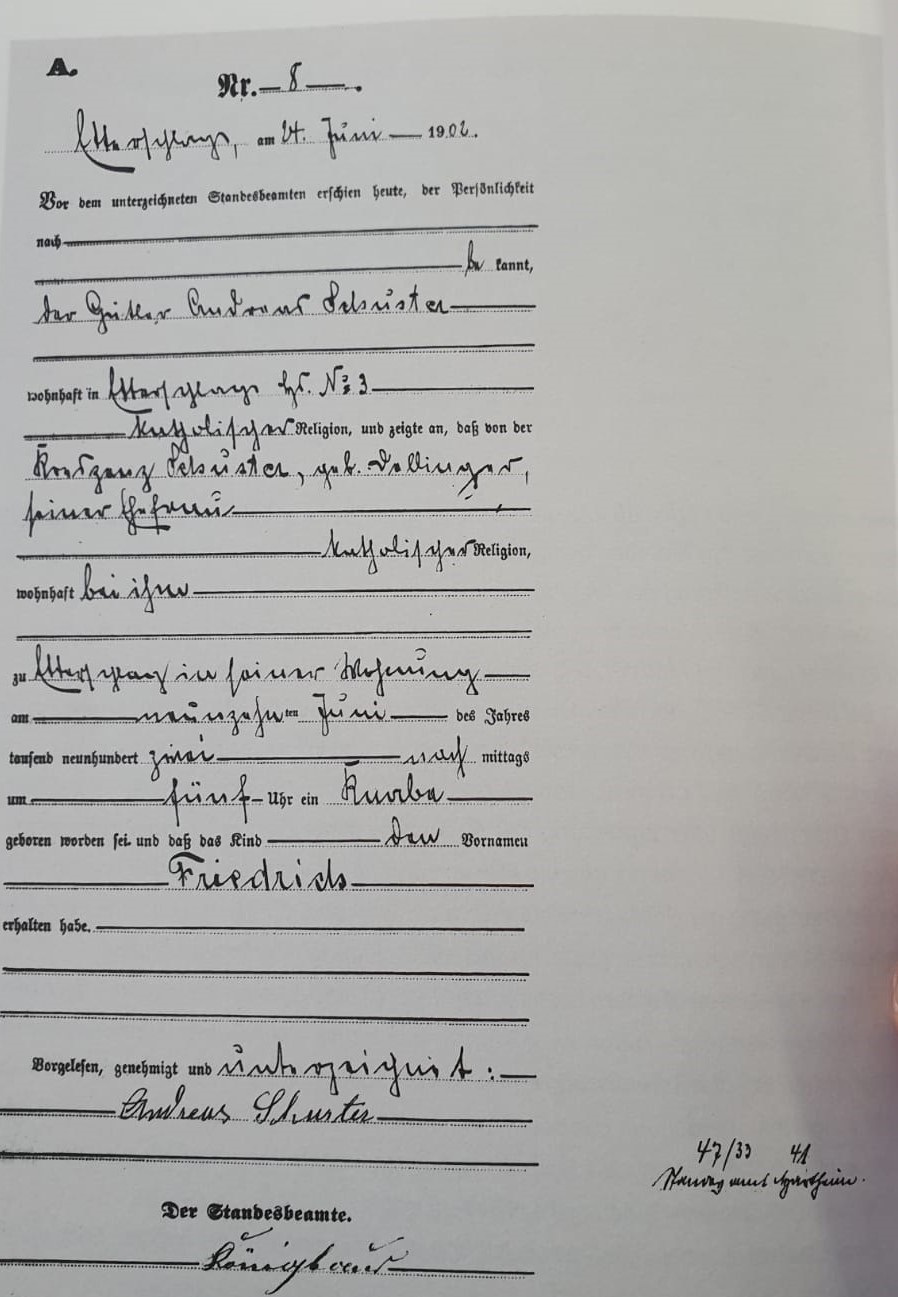 A.
Nr. 8.
Etterschlag, am 24. Juni 1902.
Vor dem unterzeichneten Standesbeamten erschien heute, der Persönlichkeit
nach
be kannt,
der Gütler Andreas Schuster
wohnhaft in Etterschlag Hs. No: 3
katholischer Religion, und zeigte an, daß von der
Kreszenz Schuster, geb. Dellinger,
seiner Ehefrau
katholischer Religion,
wohnhaft bei ihm
zu Etterschlag in seiner Wohnung
am neunzehnten Juni des Jahres
tausend neunhundert zwei nach mittags
um fünf Uhr ein Knabe
geboren worden sei und daß das Kind den Vornamen
Friedrich
erhalten habe.
Vorgelesen, genehmigt und unterzeichnet:
Andreas Schuster
47/33 41
Standesamt Hartheim.
Der Standesbeamte.